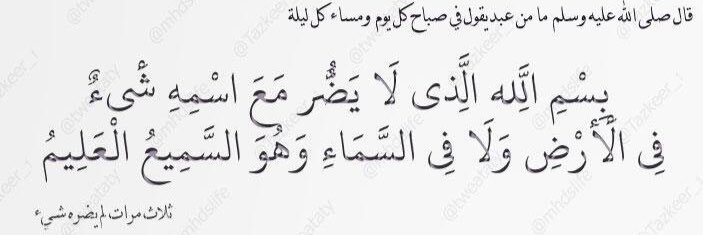 قال صلى الله عليه وسلم ما من عبد يقول في صباح كل يوم ومساء كل ليلة
بِسْمِ اللَّه الَّذِى لَا يَضُّر مَعَ اسْمِهِ شَىءٌ
فِى الْأَرْضِ وَلَا فِى السَّمَاءِ وَهُوَ السَّمِيعُ الْعَلِيمُ
ثلاث مرات لم يضره شيء